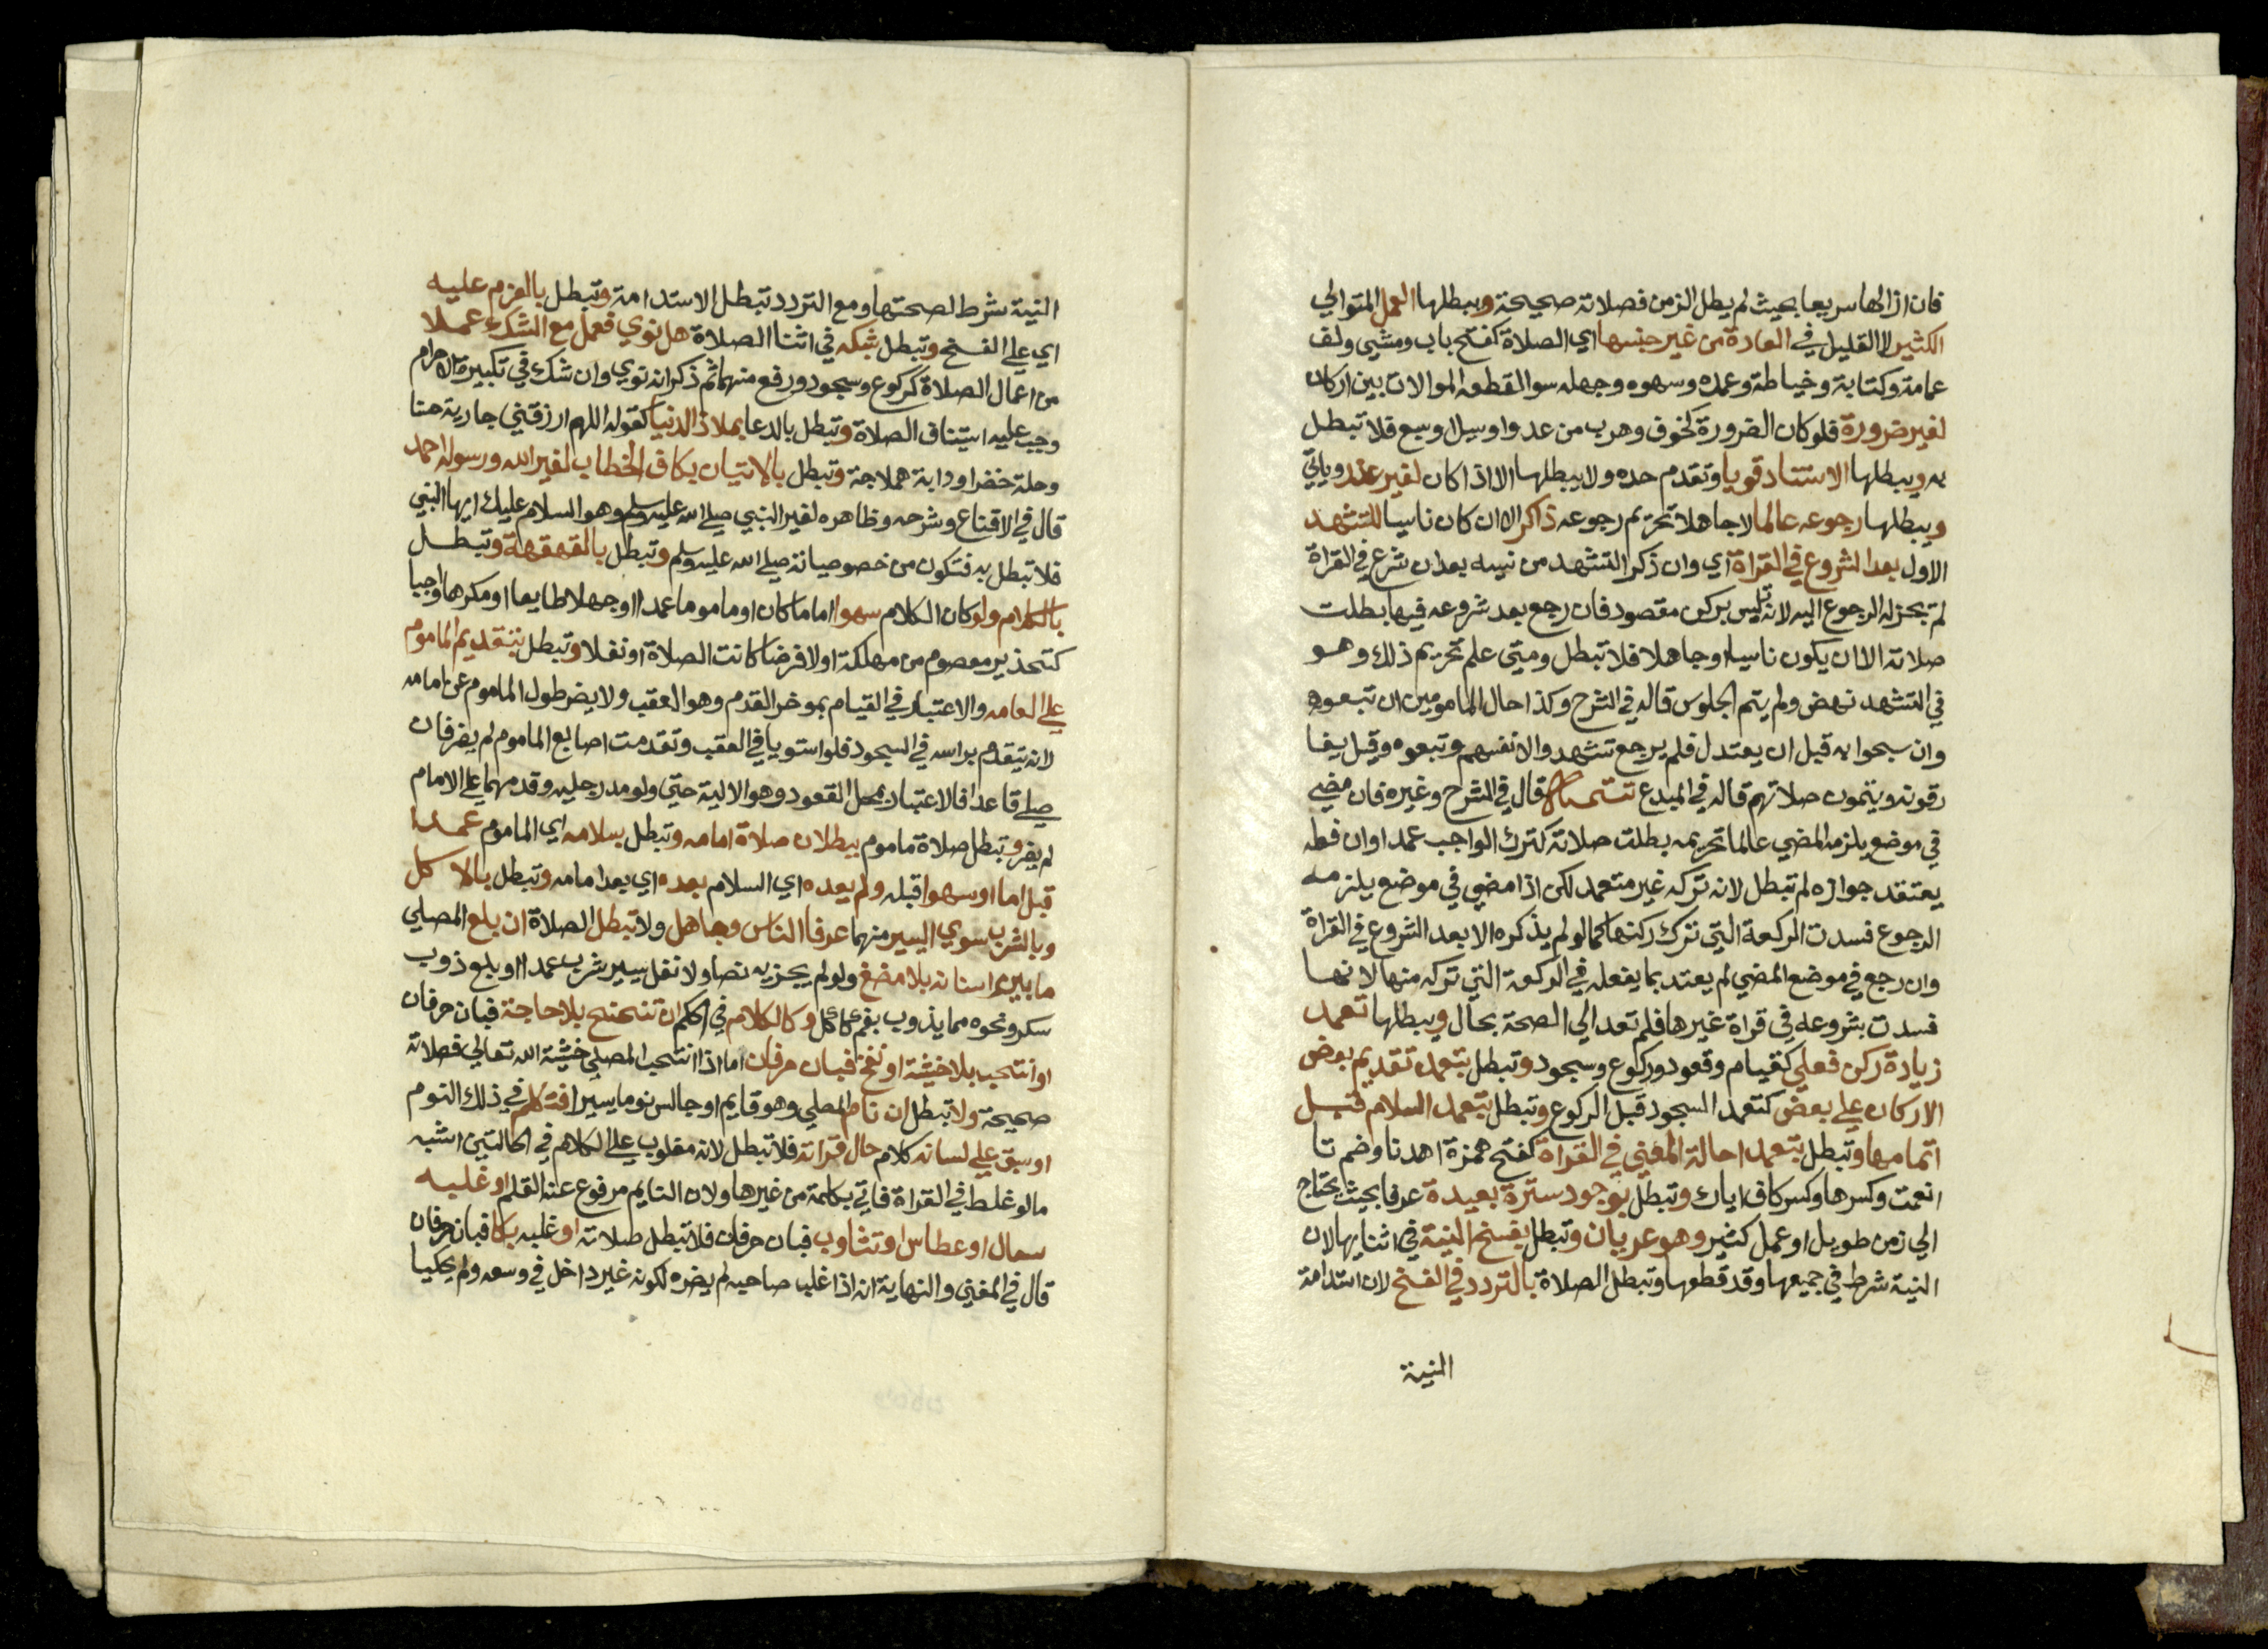 فان ازالها سريعا بحيث لم يطل الزمن فصلاته صحيحة ويبطلها العمل المتوالي
الكثير لا القليل في العادة من غير جنسها اي الصلاة كفتح باب ومشي ولف
عمامة وكتابة وخياطة وعمده وسهوه وجهله سوا لقطعه الموالات بين اركان
لغير ضرورة فلو كان الضرورة كخوف وهرب من عدو اوسيل اوسبع فلا تبطل
به ويبطلها الاستناد قويا وتقدم حده ولا يبطلها الا اذا كان لغير عذر وياتي
ويبطلها رجوعه عالما لا جاهلا تحريم رجوعه ذاكرا لا ان كان ناسيا للتشهد
الاول بعد الشروع في القراة اي وان ذكر التشهد من نسيه بعد ان شرع في القراة
لم يجز له الرجوع اليه لانه تلبس بركن مقصود فان رجع بعد شروعه فيها بطلت
صلاته الا ان يكون ناسيا اوجاهلا فلا تبطل ومتى علم تحريم ذلك وهو
في التشهد نهض ولم يتم الجلوس قاله في الشرح وكذا حال المامومين ان تبعوه
وان سبحوا به قبل ان يعتدل فلم يرجع تشهدوا لانفسهم وتبعوه وقيل يفا
رقونه ويتمون صلاتهم قاله في المبدع تتمة قال في الشرح وغيره فان مضي
في موضع يلزمه المضي عالما تحريمه بطلت صلاته كترك الواجب عمدا وان فعله
يعتقد جوازه لم تبطل لانه تركه غير متعمد لكن اذا مضي في موضع يلزمه
الرجوع فسدت الركعة التي ترك ركنها كما لو لم يذكره الا بعد الشروع في القراة
وان رجع في موضع المضي لم يعتد بما يفعله في الركعة التي تركه منها لانها
فسدت بشروعه في قراة غيرها فلم تعد الي الصحة بحال ويبطلها تعمد
زيادة ركن فعلي كقيام وقعود وركوع وسجود وتبطل بتعمد تقديم بعض
الاركان علي بعض كتعمد السجود قبل الركوع وتبطل بتعمد السلام قبل
اتمامها وتبطل بتعمد احالة المعني في القراة كفتح همزة اهدنا وضم تا
انعمت وكسرها وكسر كاف اياك وتبطل بوجود سترة بعيدة عرفا بحيث يحتاج
الي زمن طويل او عمل كثير وهو عريان وتبطل بفسخ النية في اثنايها لان
النية شرط في جميعها وقد قطعها وتبطل الصلاة بالتردد في الفسخ لان استدامة
النية
النية شرط لصحتها ومع التردد تبطل الاستدامة وتبطل بالعزم عليه
اي علي الفسخ وتبطل بشكه في اثنا الصلاة هل نوي فعمل مع الشك عملا
من اعمال الصلاة كركوع وسجود ورفع منهما ثم ذكر انه نوي وان شك في تكبيرة الاحرام
وجب عليه استيناف الصلاة وتبطل بالدعا بملاذ الدنيا كقوله اللهم ارزقني جارية حسنا
وحلة خضرا ودابة هملاجة وتبطل بالاتيان بكاف الخطاب لغير الله ورسوله احمد
قال في الاقناع وشرحه وظاهره لغير النبي صلي الله عليه وسلم وهو السلام عليك ايها النبي
فلا تبطل به فتكون من خصوصياته صلي الله عليه وسلم وتبطل بالقهقهة وتبطل
بالكلام ولو كان الكلام سهوا اماما كان او ماموما عمدا اوجهلا طايعا او مكرها واجبا
كتحذير معصوم من مهلكة اولا فرضا كانت الصلاة او نفلا وتبطل بتقديم الماموم
علي امامه والاعتبار في القيام بموخر القدم وهو العقب ولا يضر طول الماموم عن امامه
لانه يتقدم براسه في السجود فلو استويا في العقب وتقدمت اصابع الماموم لم يضر فان
صلي قاعدا فالاعتبار بمحل القعود وهو الالية حتي ولو مد رجليه وقدمهما علي الامام
لم يضر وتبطل صلاة ماموم ببطلان صلاة امامه وتبطل بسلامه اي الماموم عمدا
قبل امامه او سهوا قبله ولم يعده اي السلام بعده اي بعد امامه وتبطل بالاكل
وبالشرب سوي اليسير منهما عرفا لناس وجاهل ولا تبطل الصلاة ان بلع المصلي
ما بين اسنانه بلا مضغ ولو لم يجز به نصا ولا نفل بيسير شرب عمدا او بلع ذوب
سكر ونحوه مما يذوب بفم كاكل وكالكلام في الحكم ان تنحنح بلا حاجة فبان حرفان
او انتحب بلا خشية او نفخ فبان حرفان اما اذا انتحب المصلي خشية الله تعالي فصلاته
صحيحة ولا تبطل ان نام المصلي وهو قايم او جالس نوما يسيرا فتكلم في ذلك النوم
او سبق علي لسانه كلام حال قراته فلا تبطل لانه مغلوب علي الكلام في الحالتين اشبه
مالو غلط في القراة فاتي بكلمة من غيرها ولان النايم مرفوع عنه القلم او غلبه
سعال او عطاس او تثاوب فبان حرفان فلا تبطل صلاته او غلبه بكا فبان حرفان
قال في المغني والنهاية انه اذا غلب صاحبه لم يضره لكونه غير داخل في وسعه ولم يحكيا